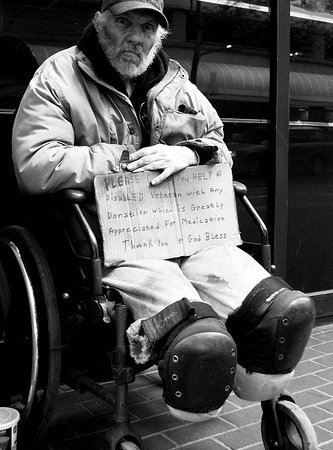 PLEASE You HELP A
DisaBLED Veteran with Any
Donation which is Greatly
Appreciated For Medication
Thank You & God Bless